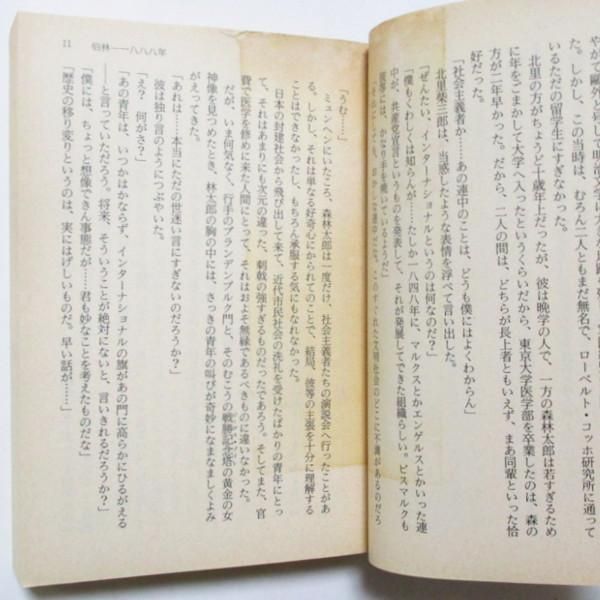 やて鷗外と号して明治文
た。しかし、この当時は、むろん二人ともまだ無名で、ローベルト・コッホ研究所に通って
いるただの留学生にすぎなかった。
北里の方がちょうど十歳年上だったが、彼は晩学の人で、一方の森林太郎は若すぎるため
に年をごまかして大学へ入ったというくらいだから、東京大学医学部を卒業したのは、森の
方が二年早かった。だから、二人の間は、どちらが長上者ともいえず、まあ同輩といった恰
好だった。
「社会主義者か……あの連中のことは、どうも僕にはよくわからん」
北里柴三郎は、当惑したような表情を浮べて言い出した。
「ぜんたい、インターナショナルというのは何なのだ?」
「僕もくわしくは知らんが……たしか一八四八年に、マルクスとかエンゲルスとかいった連
中が、共産党宣言というものを発表して、それが発展してできた組織らしい。ビスマルクも
彼等には、かなり手を焼いているようだ」
11 伯林――一八八八年
「うむ……」
ミュンヘンにいたころ、森林太郎は一度だけ、社会主義者たちの演説会へ行ったことがあ
る。しかし、それは単なる好奇心にかられてのことで、結局、彼等の主張を十分に理解する
ことはできなかったし、もちろん承服する気にもなれなかった。
日本の封建社会から飛び出して来て、近代市民社会の洗礼を受けたばかりの青年にとっ
て、それはあまりにも次元の違った、刺戟の強すぎるものだったであろう。そしてまた、官
費で医学を修めに来た人間にとって、それはおよそ無縁であるべきものに違いなかった。
だが、いま何気なく、行手のブランデンブルク門と、そのむこうの戦勝記念塔の黄金の女
神像を見つめたとき、林太郎の胸の中には、さっきの青年の叫びが奇妙になまなましくよみ
がえってきた。
「あれは……本当にただの世迷い言にすぎないのだろうか?」
彼は独り言のようにつぶやいた。
「え? 何がさ?」
「あの青年は、いつかはかならず、インターナショナルの旗があの門に高らかにひるがえる
――と言っていただろう。将来、そういうことが絶対にないと、言いきれるだろうか?」
「僕には、ちょっと想像できん事態だが……君も妙なことを考えたものだな」
「歴史の移り変りというのは、実にはげしいものだ。早い話が……」